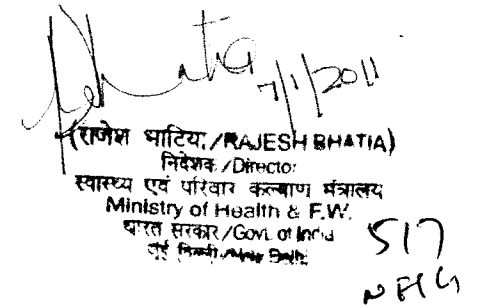 Bhatia 7/1/2011
(राजेश भाटिया/RAJESH BHATIA)
निदेशक/Director
स्वास्थ्य एवं परिवार कल्याण मंत्रालय
Ministry of Health & F.W.
भारत सरकार/Govt. of India
नई दिल्ली/New Delhi
517